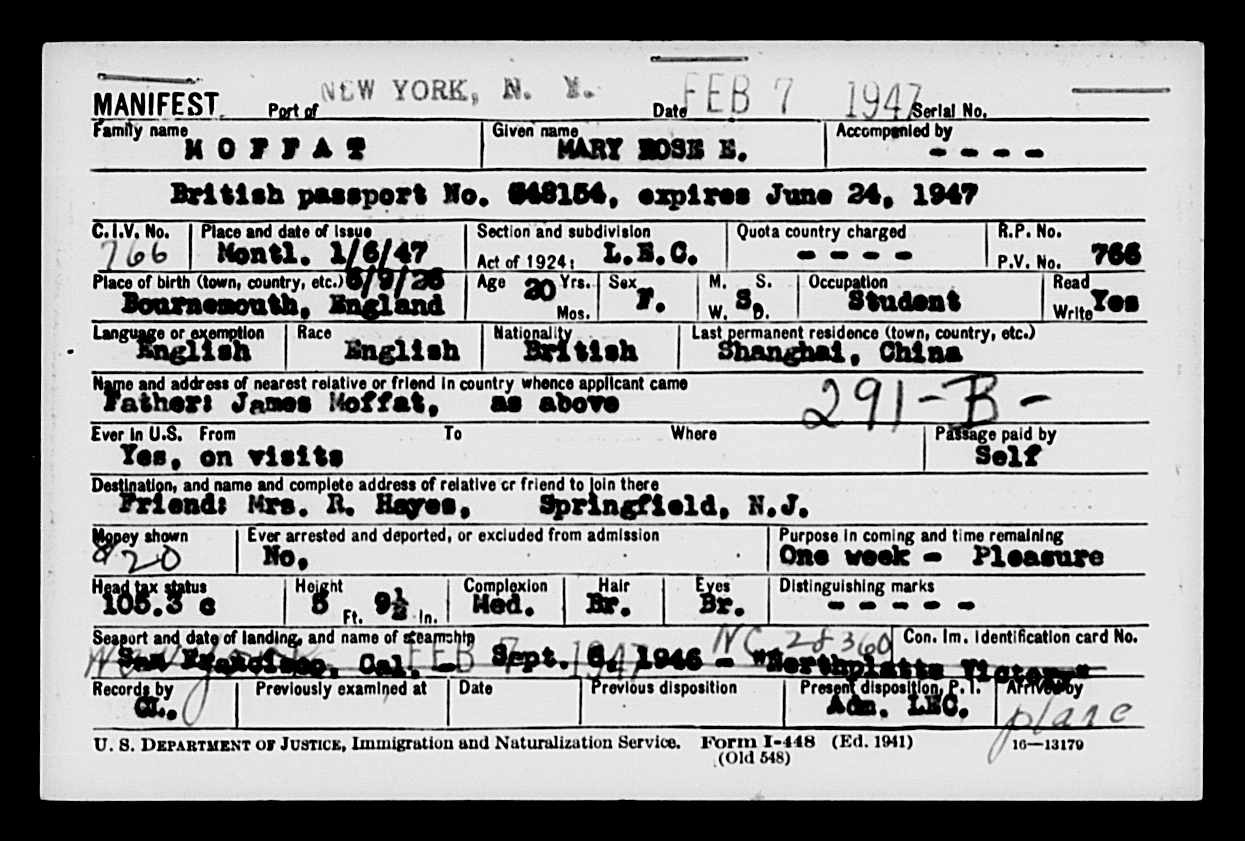 MANIFEST Port of NEW YORK, N. Y. Date FEB 7 1947 Serial No.
Family name Given name Accompanied by
MOFFAT MARY ROSE E. - - - -
British passport No. 648154, expires June 24, 1947
C.I.V. No. Place and date of issue Section and subdivision Quota country charged R.P. No.
766 Montl. 1/6/47 Act of 1924: L.E.C. - - - - P.V. No. 766
Place of birth (town, country, etc.) Age Yrs. Sex M. S. Occupation Read
Bournemouth, England 20 Mos. F. W. S. D. Student Write Yes
Language or exemption Race Nationality Last permanent residence (town, country, etc.)
English English British Shanghai, China
Name and address of nearest relative or friend in country whence applicant came
Father: James Moffat, as above 291-B-
Ever in U.S. From To Where Passage paid by
Yes, on visits Self
Destination, and name and complete address of relative or friend to join there
Friend: Mrs. R. Hayes, Springfield, N.J.
Money shown Ever arrested and deported, or excluded from admission Purpose in coming and time remaining
$20 No. One week - Pleasure
Head tax status Height Complexion Hair Eyes Distinguishing marks
105.3 c 5 Ft. 9½ In. Med. Br. Br. - - - - -
Seaport and date of landing, and name of steamship NC 28360 Con. Im. Identification card No.
San Francisco, Cal. - Sept. 6, 1946 - "Northplatte Victory"
New York FEB 7 1947
Records by Previously examined at Date Previous disposition Present disposition, P. I. Arrived by
CL. Adm. LEC. plane
U. S. DEPARTMENT OF JUSTICE, Immigration and Naturalization Service. Form I-448 (Ed. 1941) 16—13179
(Old 548)